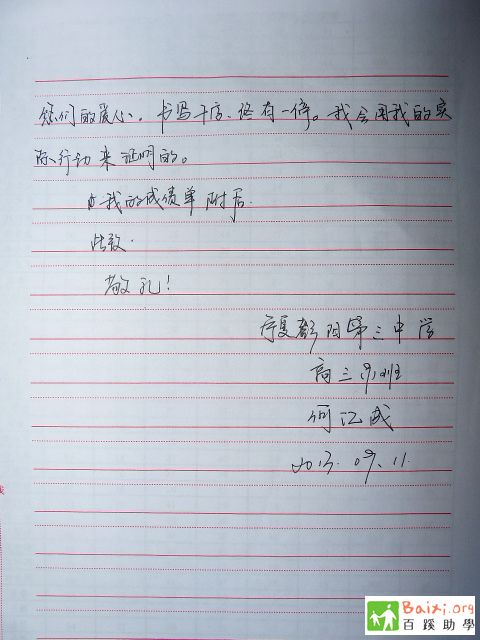 你们的爱心,书写千店,总有一停。我会用我的实
际行动来证明的。
我的成绩单附后.
此致.
敬礼!
宁夏彭阳第三中学
高三班
何江成
2013.09.11
Baixi.org
百蹊助學